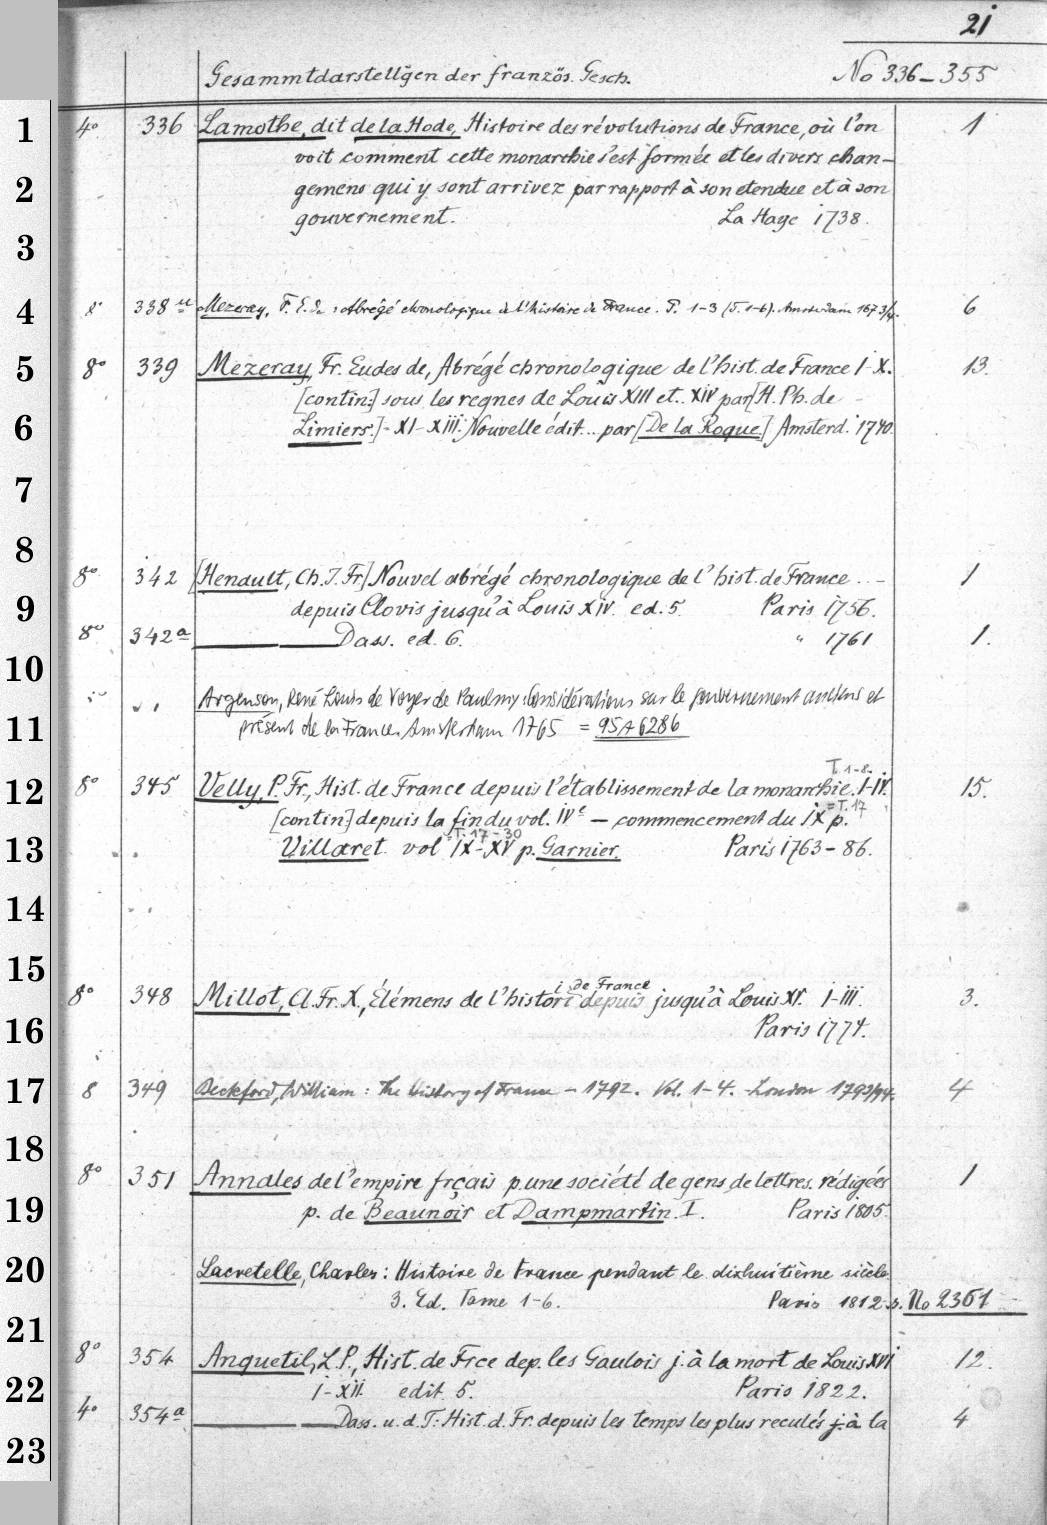 21
Gesammtdarstellgen der französ. Gesch. No 336-355
1 4° 336 Lamothe, dit de la Hode, Histoire des révolutions de France, où l'on 1
voit comment cette monarchie s'est formée et les divers chan-
2 gemens qui y sont arrivez par rapport à son etendue et à son
gouvernement. La Haye 1738.
3
4 8° 338 Mezeray, F. E. de: Abrégé chronologique de l'histoire de France. T. 1-3 (T. 1-6). Amsterdam 1673/4. 6
5 8° 339 Mezeray, Fr. Eudes de, Abrégé chronologique de l'hist. de France I-X. 13.
[contin:] sous les regnes de Louis XIII et.. XIV par [H. Ph. de
6 Limiers.] - XI-XIII. Nouvelle édit... par [De la Roque] Amsterd. 1740.
7
8
8° 342 [Henault, Ch. J. Fr.] Nouvel abrégé chronologique de l'hist. de France . . - 1
9 depuis Clovis jusqu'à Louis XIV. ed. 5. Paris 1756.
8° 342a Dass. ed. 6. " 1761 1.
10
Argenson, René Louis de Voyer de Paulmy: Considérations sur le gouvernement ancien et
11 présent de la France. Amsterdam 1765 = 95A6286
T. 1-8.
12 8° 345 Velly, P. Fr., Hist. de France depuis l'établissement de la monarchie. I-IV. 15.
=T. 17
[contin:] depuis la fin du vol. IVe - commencement du IX p.
T. 17-30
13 Villaret vol IX-XV p. Garnier. Paris 1763-86.
14
15
i de France
8° 348 Millot, Cl. Fr. X., Élémens de l'histore depuis jusqu'à Louis XV. I-III. 3.
16 Paris 1774.
17 8 349 Beckford, William: The history of France - 1792. Vol. 1-4. London 1792/94. 4
18
8° 351 Annales de l'empire frçais p. une société de gens de lettres. rédigées 1
19 p. de Beaunoir et Dampmartin. I. Paris 1805.
20 Lacretelle, Charles: Histoire de France pendant le dixhuitième siècle.
3. Ed. Tome 1-6. Paris 1812. s. No 2361
21
8° 354 Anquetil, L. P., Hist. de Frce dep. les Gaulois j. à la mort de Louis XVI 12.
22 I-XII. edit. 5. Paris 1822.
4° 354a Dass. u. d. T: Hist. d. Fr. depuis les temps les plus reculés j. à la 4
23